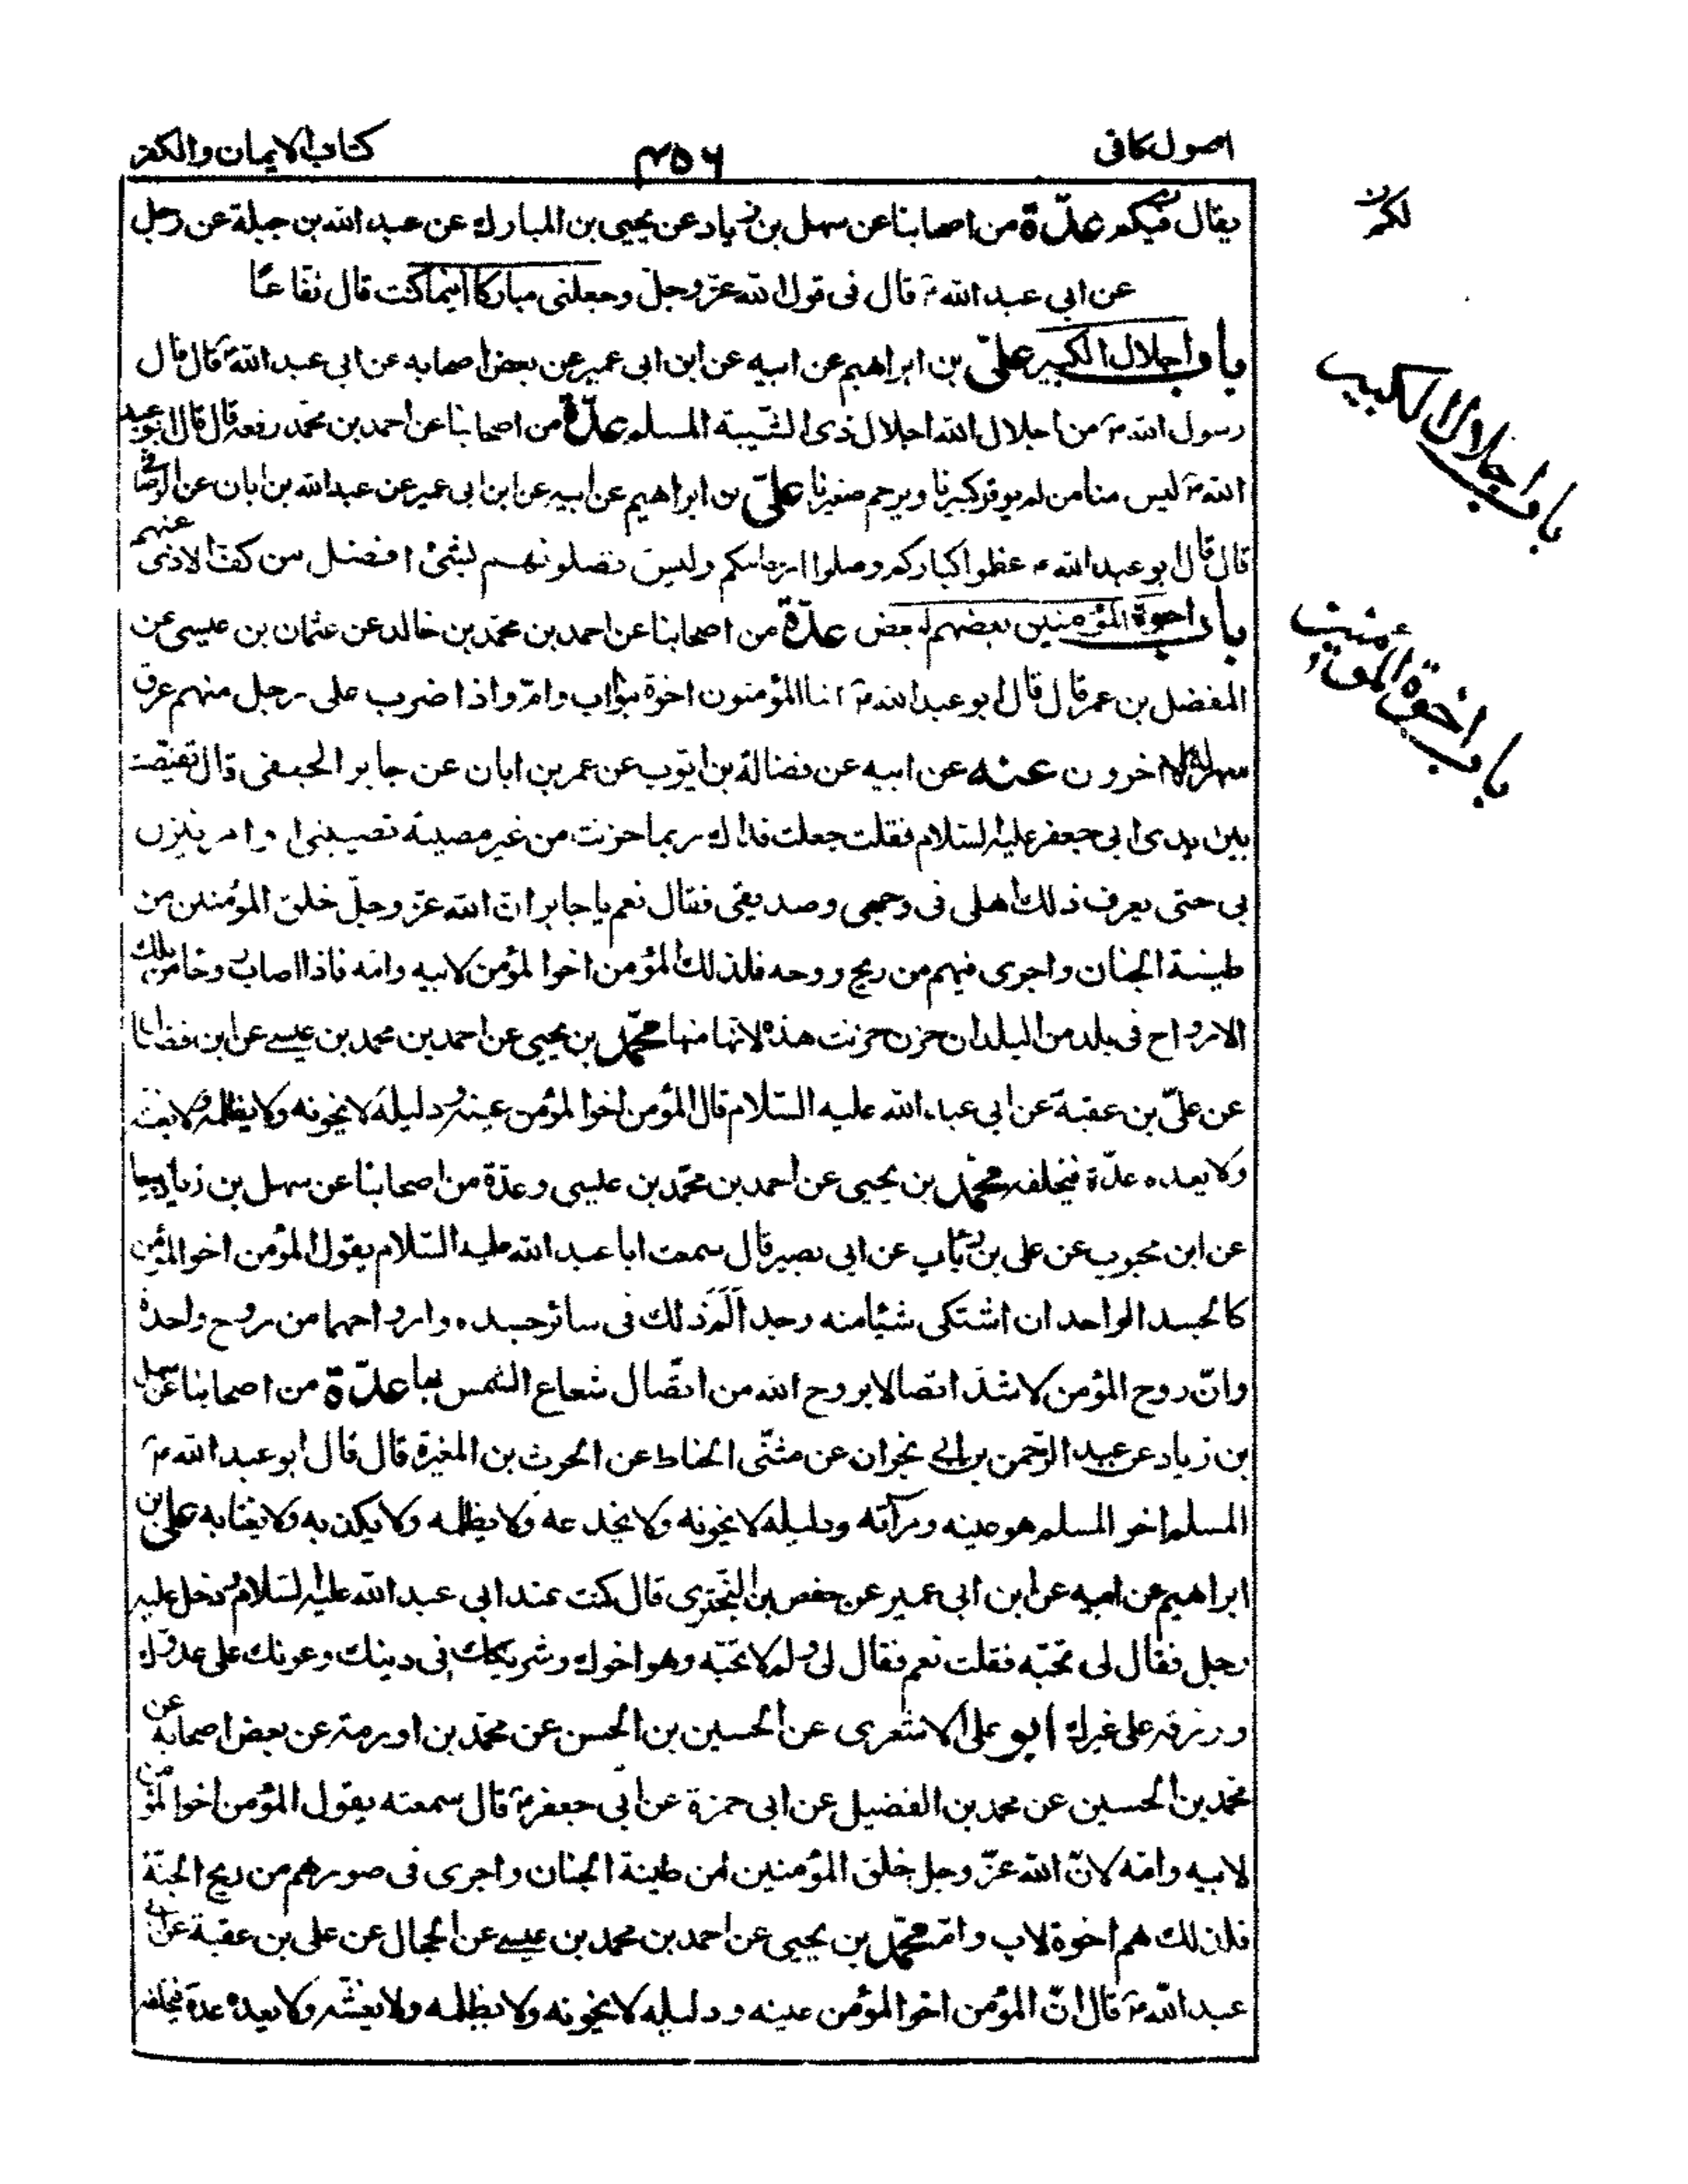 اصول كافى ٤٥٦ كتاب الايمان والكفر
يقال فيكم عدّة من اصحابنا عن سهل بن زياد عن يحيى بن المبارك عن عبد الله بن جبلة عن رجل
عن ابى عبد الله ع قال فى قول الله عزّ وجلّ وجعلنى مباركا اينما كنت قال نفّاعًا
باب اجلال الكبير علىّ بن ابراهيم عن ابيه عن ابن ابى عمير عن بعض اصحابه عن ابى عبد الله ع قال قال
رسول الله ص من اجلال الله اجلال ذى الشّيبة المسلم عدّة من اصحابنا عن احمد بن محمّد رفعه قال قال ابو عبد
الله ع ليس منا من لم يوقر كبيرنا ويرحم صغيرنا علىّ بن ابراهيم عن ابيه عن ابن ابى عمير عن عبد الله بن ابان عن الوصافى
قال قال ابو عبد الله ع عظموا كباركم وصلوا ارحامكم وليس تصلونهم بشئ افضل من كفّ الاذى عنهم
باب اخوة المؤمنين بعضهم لبعض عدّة من اصحابنا عن احمد بن محمّد بن خالد عن عثمان بن عيسى عن
المفضل بن عمر قال قال ابو عبد الله ع انما المؤمنون اخوة بنو اب وامّ واذا ضرب على رجل منهم عرق
سهر له الاخرون عنه عن ابيه عن فضالة بن ايّوب عن عمر بن ابان عن جابر الجعفى قال تقبّضت
بين يدى ابى جعفر عليه السّلام فقلت جعلت فداك ربما حزنت من غير مصيبة تصيبنى او امر ينزل
بى حتى يعرف ذلك اهلى فى وجهى وصديقى فقال نعم يا جابر انّ الله عزّ وجلّ خلق المؤمنين من
طينة الجنان واجرى فيهم من ريح روحه فلذلك المؤمن اخوا لمؤمن لابيه وامّه فاذا اصاب روحا من تلك
الارواح فى بلد من البلدان حزن حزنت هذه لانّها منها محمّد بن يحيى عن احمد بن محمد بن عيسى عن ابن فضال
عن علىّ بن عقبة عن ابى عبد الله عليه السّلام قال المؤمن اخوا لمؤمن عينه ودليله لا يخونه ولا يظلمه ولا يغشّه
ولا يعده عدّة فيخلفه محمّد بن يحيى عن احمد بن محمّد بن عيسى وعدّة من اصحابنا عن سهل بن زياد جميعا
عن ابن محبوب عن على بن رئاب عن ابى بصير قال سمعت ابا عبد الله عليه السّلام يقول المؤمن اخو المؤمن
كالجسد الواحد ان اشتكى شيئا منه وجد الم ذلك فى سائر جسده وارواحهما من روح واحدة
وانّ روح المؤمن لاشدّ اتصالا بروح الله من اتّصال شعاع الشمس بها عدّة من اصحابنا عن سهل
بن زياد عن عبد الرّحمن بن ابى نجران عن مثنّى الحناط عن الحرث بن المغيرة قال قال ابو عبد الله ع
المسلم اخو المسلم هو عينه ومرآته ودليله لا يخونه ولا يخدعه ولا يظلمه ولا يكذبه ولا يغتابه علىّ بن
ابراهيم عن ابيه عن ابن ابى عمير عن حفص بن البخترى قال كنت عند ابى عبد الله عليه السّلام ودخل عليه
رجل فقال لى تحبّه فقلت نعم فقال لى ولم لا تحبّه وهو اخوك وشريكك فى دينك وعونك على عدوّك
ورزقه على غيرك ابو على الاشعرى عن الحسين بن الحسن عن محمّد بن اورمة عن بعض اصحابه عن
محمّد بن الحسين عن محمد بن الفضيل عن ابى حمزة عن ابى جعفر ع قال سمعته يقول المؤمن اخوا لمؤمن
لابيه وامّه لانّ الله عزّ وجل خلق المؤمنين من طينة الجنان واجرى فى صورهم من ريح الجنّة
فلذلك هم اخوة لاب وامّ محمّد بن يحيى عن احمد بن محمد بن عيسى عن الحجال عن على بن عقبة عن ابى
عبد الله ع قال انّ المؤمن اخوا لمؤمن عينه ودليله لا يخونه ولا يظلمه ولا يغشّه ولا يعده عدة فيخلفه
باب اجلال الكبير
باب اخوة المؤمنين